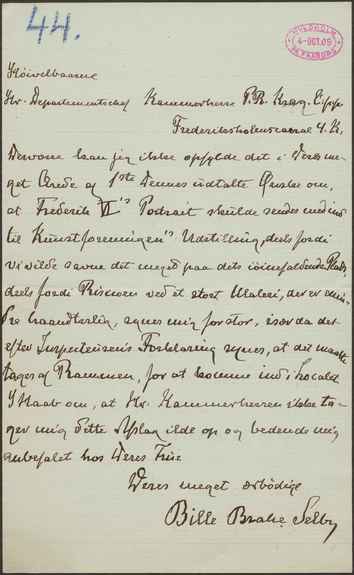 44.
HVEDHOLM
4-OCT.05
FAABORG
Høivelbaarne
Hr. Departementschef Kammerherre P.R. Krag, C. ff.
Frederiksholmscanal 4. K.
Desværre kan jeg ikke opfylde det i Deres me-
get ærede af 1ste Dennes udtalte Ønske om,
at Frederik VI's Portrait skulde sendes med ind
til Kunstforeningen's Udstilling, deels fordi
vi vilde savne det meget paa dets iøinefaldende Plads,
deels fordi Risicoen ved et stort Maleri, der er min-
dre haandterlig, synes mig for stor, især da det
efter Inspecteuren's Forklaring synes, at det maatte
tages af Rammen, for at komme ind i Localet
I Haab om, at Hr. Kammerherren ikke ta-
ger mig dette Afslag ilde op og bedende mig
anbefalet hos Deres Frue
Deres meget ærbødige
Bille Brahe Selby